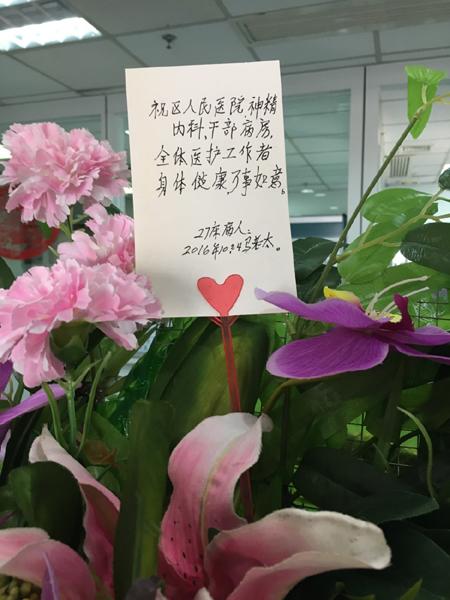 祝区人民医院.神精
内科.干部病房.
全体医护工作者
身体健康万事如意。
27床病人:
2016年10.24马老太。